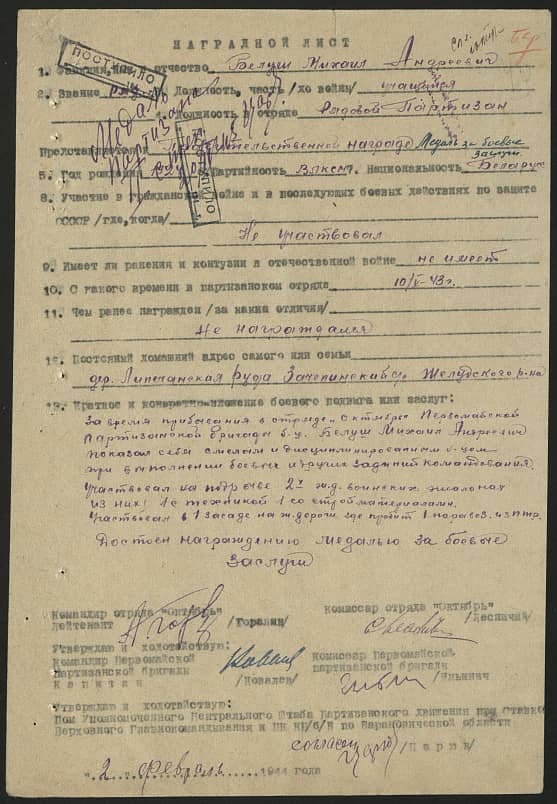 НАГРАДНОЙ ЛИСТ
1. Фамилия, имя и отчество Белуш Михаил Андреевич
2. Звание 3. Должность, часть /хо войны/ учащийся
4. Должность в отряде Рядовой Партизан
Представляется к правительственной награде Медаль за боевые заслуги
5. Год рождения Партийность ВЛКСМ 7. Национальность Беларус
8. Участие в гражданской войне и в последующих боевых действиях по защите
СССР /где, когда/
Не участвовал
9. Имеет ли ранения и контузии в отечественной войне не имеет
10. С какого времени в партизанском отряде 10/V-43 г.
11. Чем ранее награжден /за какие отличия/
Не награждался
12. Постояный домашний адрес самого или семьи
дер. Липичанская Руда Зачепинский с/с Желудского р-на
13. Краткое и конкретное изложение боевого подвига или заслуг:
За время пребывания в отряде "Октябрь" Первомайской
Партизанской бригады б-ц. Белуш Михаил Андреевич
показал себя смелым и дисциплинированым б-цем
при выполнении боевых и других заданий коматдования.
Участвовал на подрыве 2х ж.д. воинских эшалонах
из них: 1 с техникой 1 со стройматериалами.
Участвовал в 1 засаде на ж. дороги где пробит 1 паравоз. из ПТР.
Достоен награждению медалью за боевые
заслуги
Командир отряда "Октябрь" Комиссар отряда "Октябрь"
Лейтенант /Горалик/ /Лесничий/
Утверждаю и ходотойствую:
Командир Первомайской Комиссар Первомайской
партизанской бригады партизанской бригады
Капитан /Ковалев/ /Ильинич/
Утверждаю и ходотойствую:
Пом Упономоченного Центрального Штаба Партизанского движения при Ставке
Верховного Главнокомандывания и ЦК КП/б/Б по Барановической области
согласен /Царюк/
"2" Февраль 1944 года